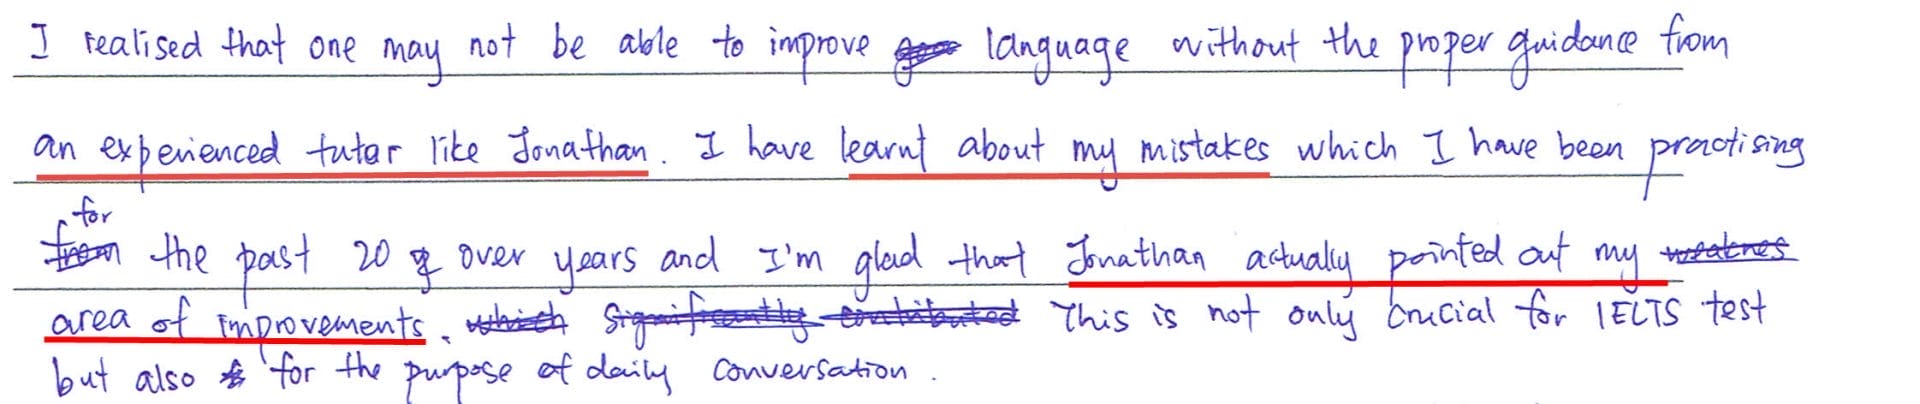 I realised that one may not be able to improve language without the proper guidance from
an experienced tutor like Jonathan. I have learnt about my mistakes which I have been practising
for
from the past 20 over years and I'm glad that Jonathan actually pointed out my weaknes
area of improvements. which significantly contributed This is not only crucial for IELTS test
but also for the purpose of daily conversation.